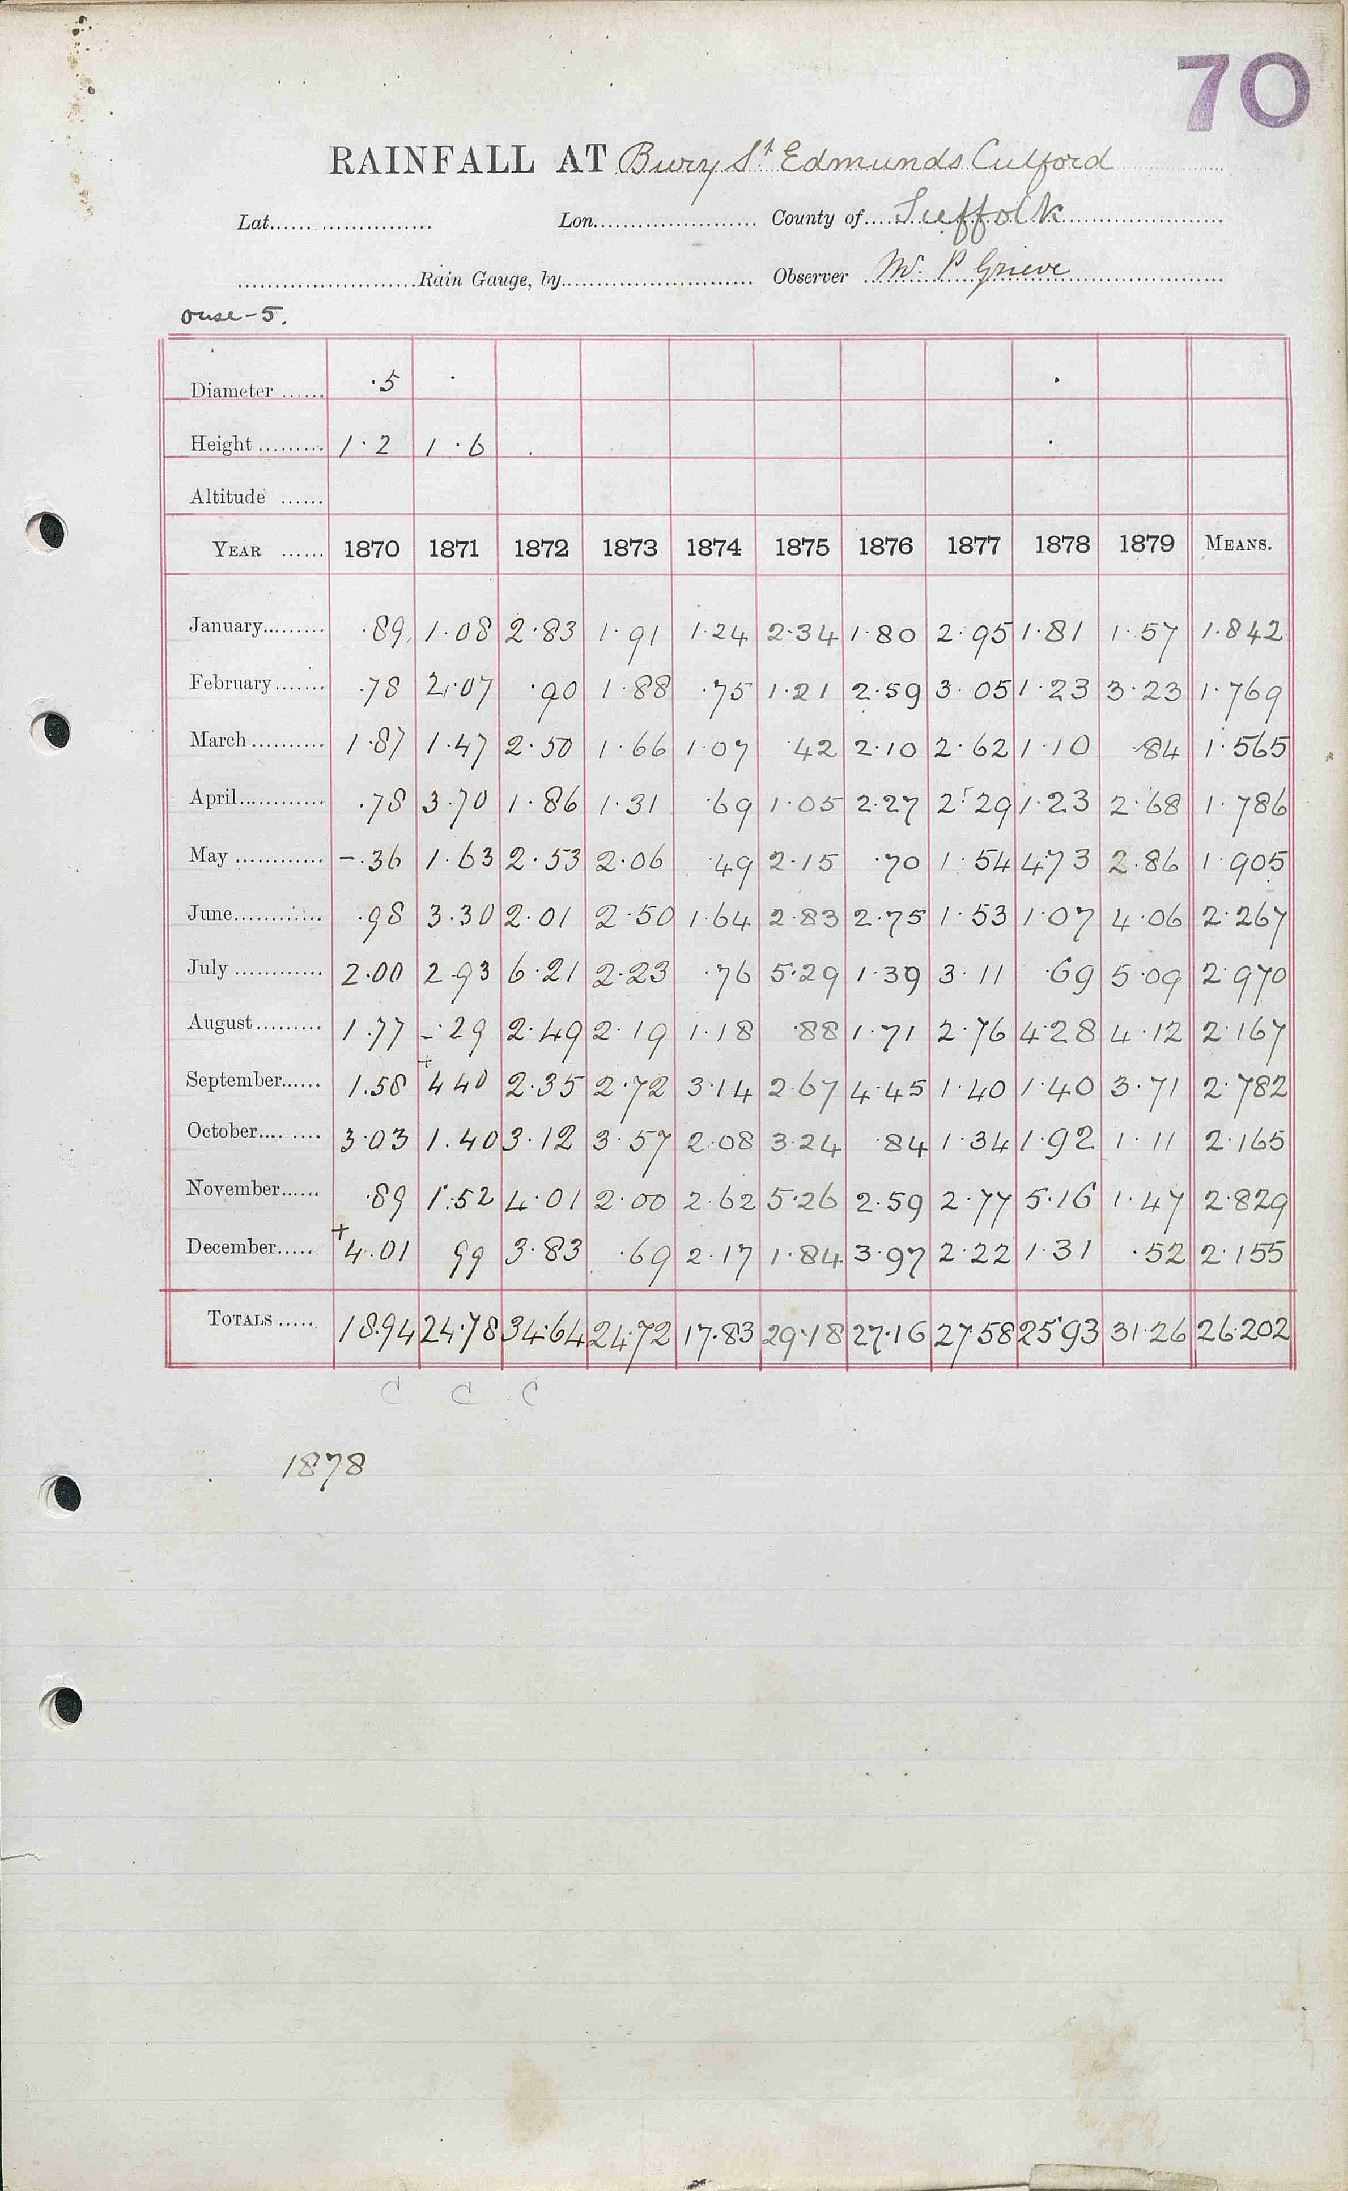 70
RAINFALL AT Bury St Edmunds Culford
Lat. Lon. County of Suffolk
Rain Gauge, by Observer Mr. P Grieve
Ouse-5.
Diameter ·5
Height 1·2 1·6
Altitude
YEAR 1870 1871 1872 1873 1874 1875 1876 1877 1878 1879 MEANS.
January ·89 1·08 2·83 1·91 1·24 2·34 1·80 2·95 1·81 1·57 1·842
February ·78 2·07 ·90 1·88 ·75 1·21 2·59 3·05 1·23 3·23 1·769
March 1·87 1·47 2·50 1·66 1·07 ·42 2·10 2·62 1·10 ·84 1·565
April ·78 3·70 1·86 1·31 ·69 1·05 2·27 2·29 1·23 2·68 1·786
May -·36 1·63 2·53 2·06 ·49 2·15 ·70 1·54 4·73 2·86 1·905
June ·98 3·30 2·01 2·50 1·64 2·83 2·75 1·53 1·07 4·06 2·267
July 2·00 2·93 6·21 2·23 ·76 5·29 1·39 3·11 ·69 5·09 2·970
August 1·77 -·29 2·49 2·19 1·18 ·88 1·71 2·76 4·28 4·12 2·167
September 1·58 +4·40 2·35 2·72 3·14 2·67 4·45 1·40 1·40 3·71 2·782
October 3·03 1·40 3·12 3·57 2·08 3·24 ·84 1·34 1·92 1·11 2·165
November ·89 1·52 4·01 2·00 2·62 5·26 2·59 2·77 5·16 1·47 2·829
December +4·01 99 3·83 ·69 2·17 1·84 3·97 2·22 1·31 ·52 2·155
TOTALS 18·94 24·78 34·64 24·72 17·83 29·18 27·16 27·58 25·93 31·26 26·202
C C C
1878